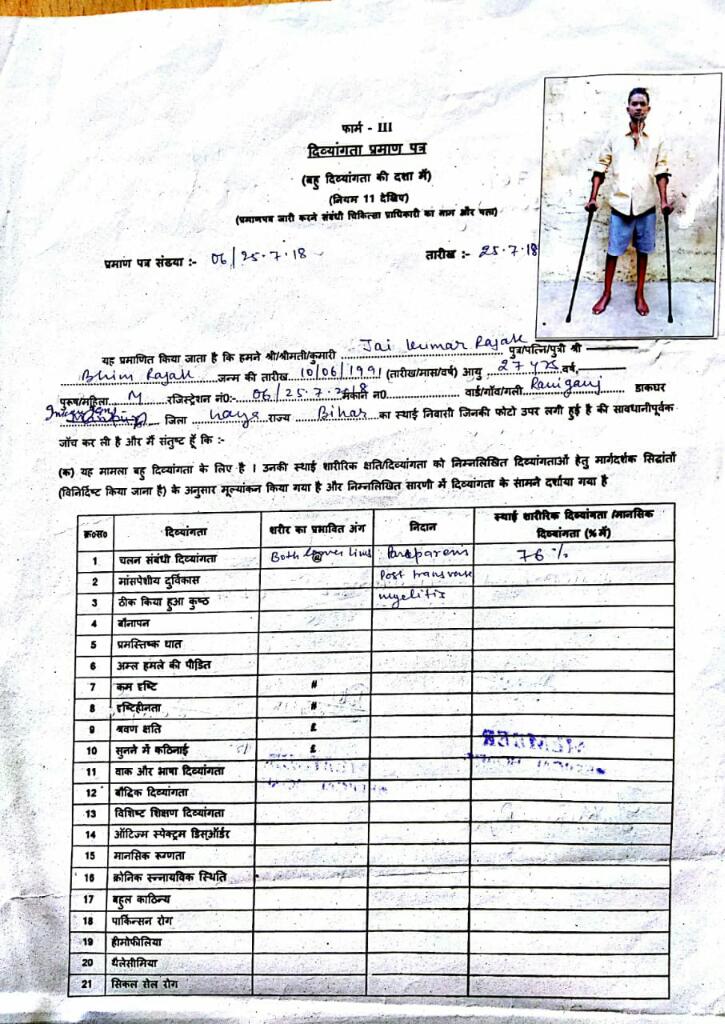 फार्म - III
दिव्यांगता प्रमाण पत्र
(बहु दिव्यांगता की दशा में)
(नियम 11 देखिए)
(प्रमाणपत्र जारी करने संबंधी चिकित्सा प्राधिकारी का नाम और पता)
प्रमाण पत्र संख्या :- 06/25.7.18 तारीख :- 25.7.18
यह प्रमाणित किया जाता है कि हमने श्री/श्रीमती/कुमारी Jai Kumar Rajak पुत्र/पत्नि/पुत्री श्री
Bhim Rajak जन्म की तारीख 10/06/1991 (तारीख/मास/वर्ष) आयु 27 yrs वर्ष,
पुरूष/महिला M रजिस्ट्रेशन नं0:- 06/25.7.2018 मकान न0 वार्ड/गॉंव/गली Raniganj डाकघर
जिला Gaya राज्य Bihar का स्थाई निवासी जिनकी फोटो उपर लगी हुई है की सावधानीपूर्वक
जॉंच कर ली है और मैं संतुष्ट हूँ कि :-
(क) यह मामला बहु दिव्यांगता के लिए है । उनकी स्थाई शारीरिक क्षति/दिव्यांगता को निम्नलिखित दिव्यांगताओं हेतु मार्गदर्शक सिद्वांतों
(विनिर्दिष्ट किया जाना है) के अनुसार मूल्यांकन किया गया है और निम्नलिखित सारणी में दिव्यांगता के सामने दर्शाया गया है
क्र०स० दिव्यांगता शरीर का प्रभावित अंग निदान स्थाई शारीरिक दिव्यांगता /मानसिक दिव्यांगता (% में)
1 चलन संबंधी दिव्यांगता Both lower limbs Paraparesis 76 %
2 मांसपेशीय दुर्विकास Post transverse
3 ठीक किया हुआ कुष्ठ myelitis
4 बौनापन
5 प्रमस्तिष्क घात
6 अम्ल हमले की पीड़ित
7 कम दृष्टि #
8 दृष्टिहीनता #
9 श्रवण क्षति £
10 सुनने में कठिनाई £
11 वाक और भाषा दिव्यांगता
12 बौद्विक दिव्यांगता
13 विशिष्ट शिक्षण दिव्यांगता
14 ऑटिज्म स्पेक्ट्रम डिस्ऑर्डर
15 मानसिक रूग्णता
16 क्रोनिक स्न्नायविक स्थिति
17 बहुल काठिन्य
18 पार्किन्सन रोग
19 हीमोफीलिया
20 थैलेसीमिया
21 सिकल सेल रोग